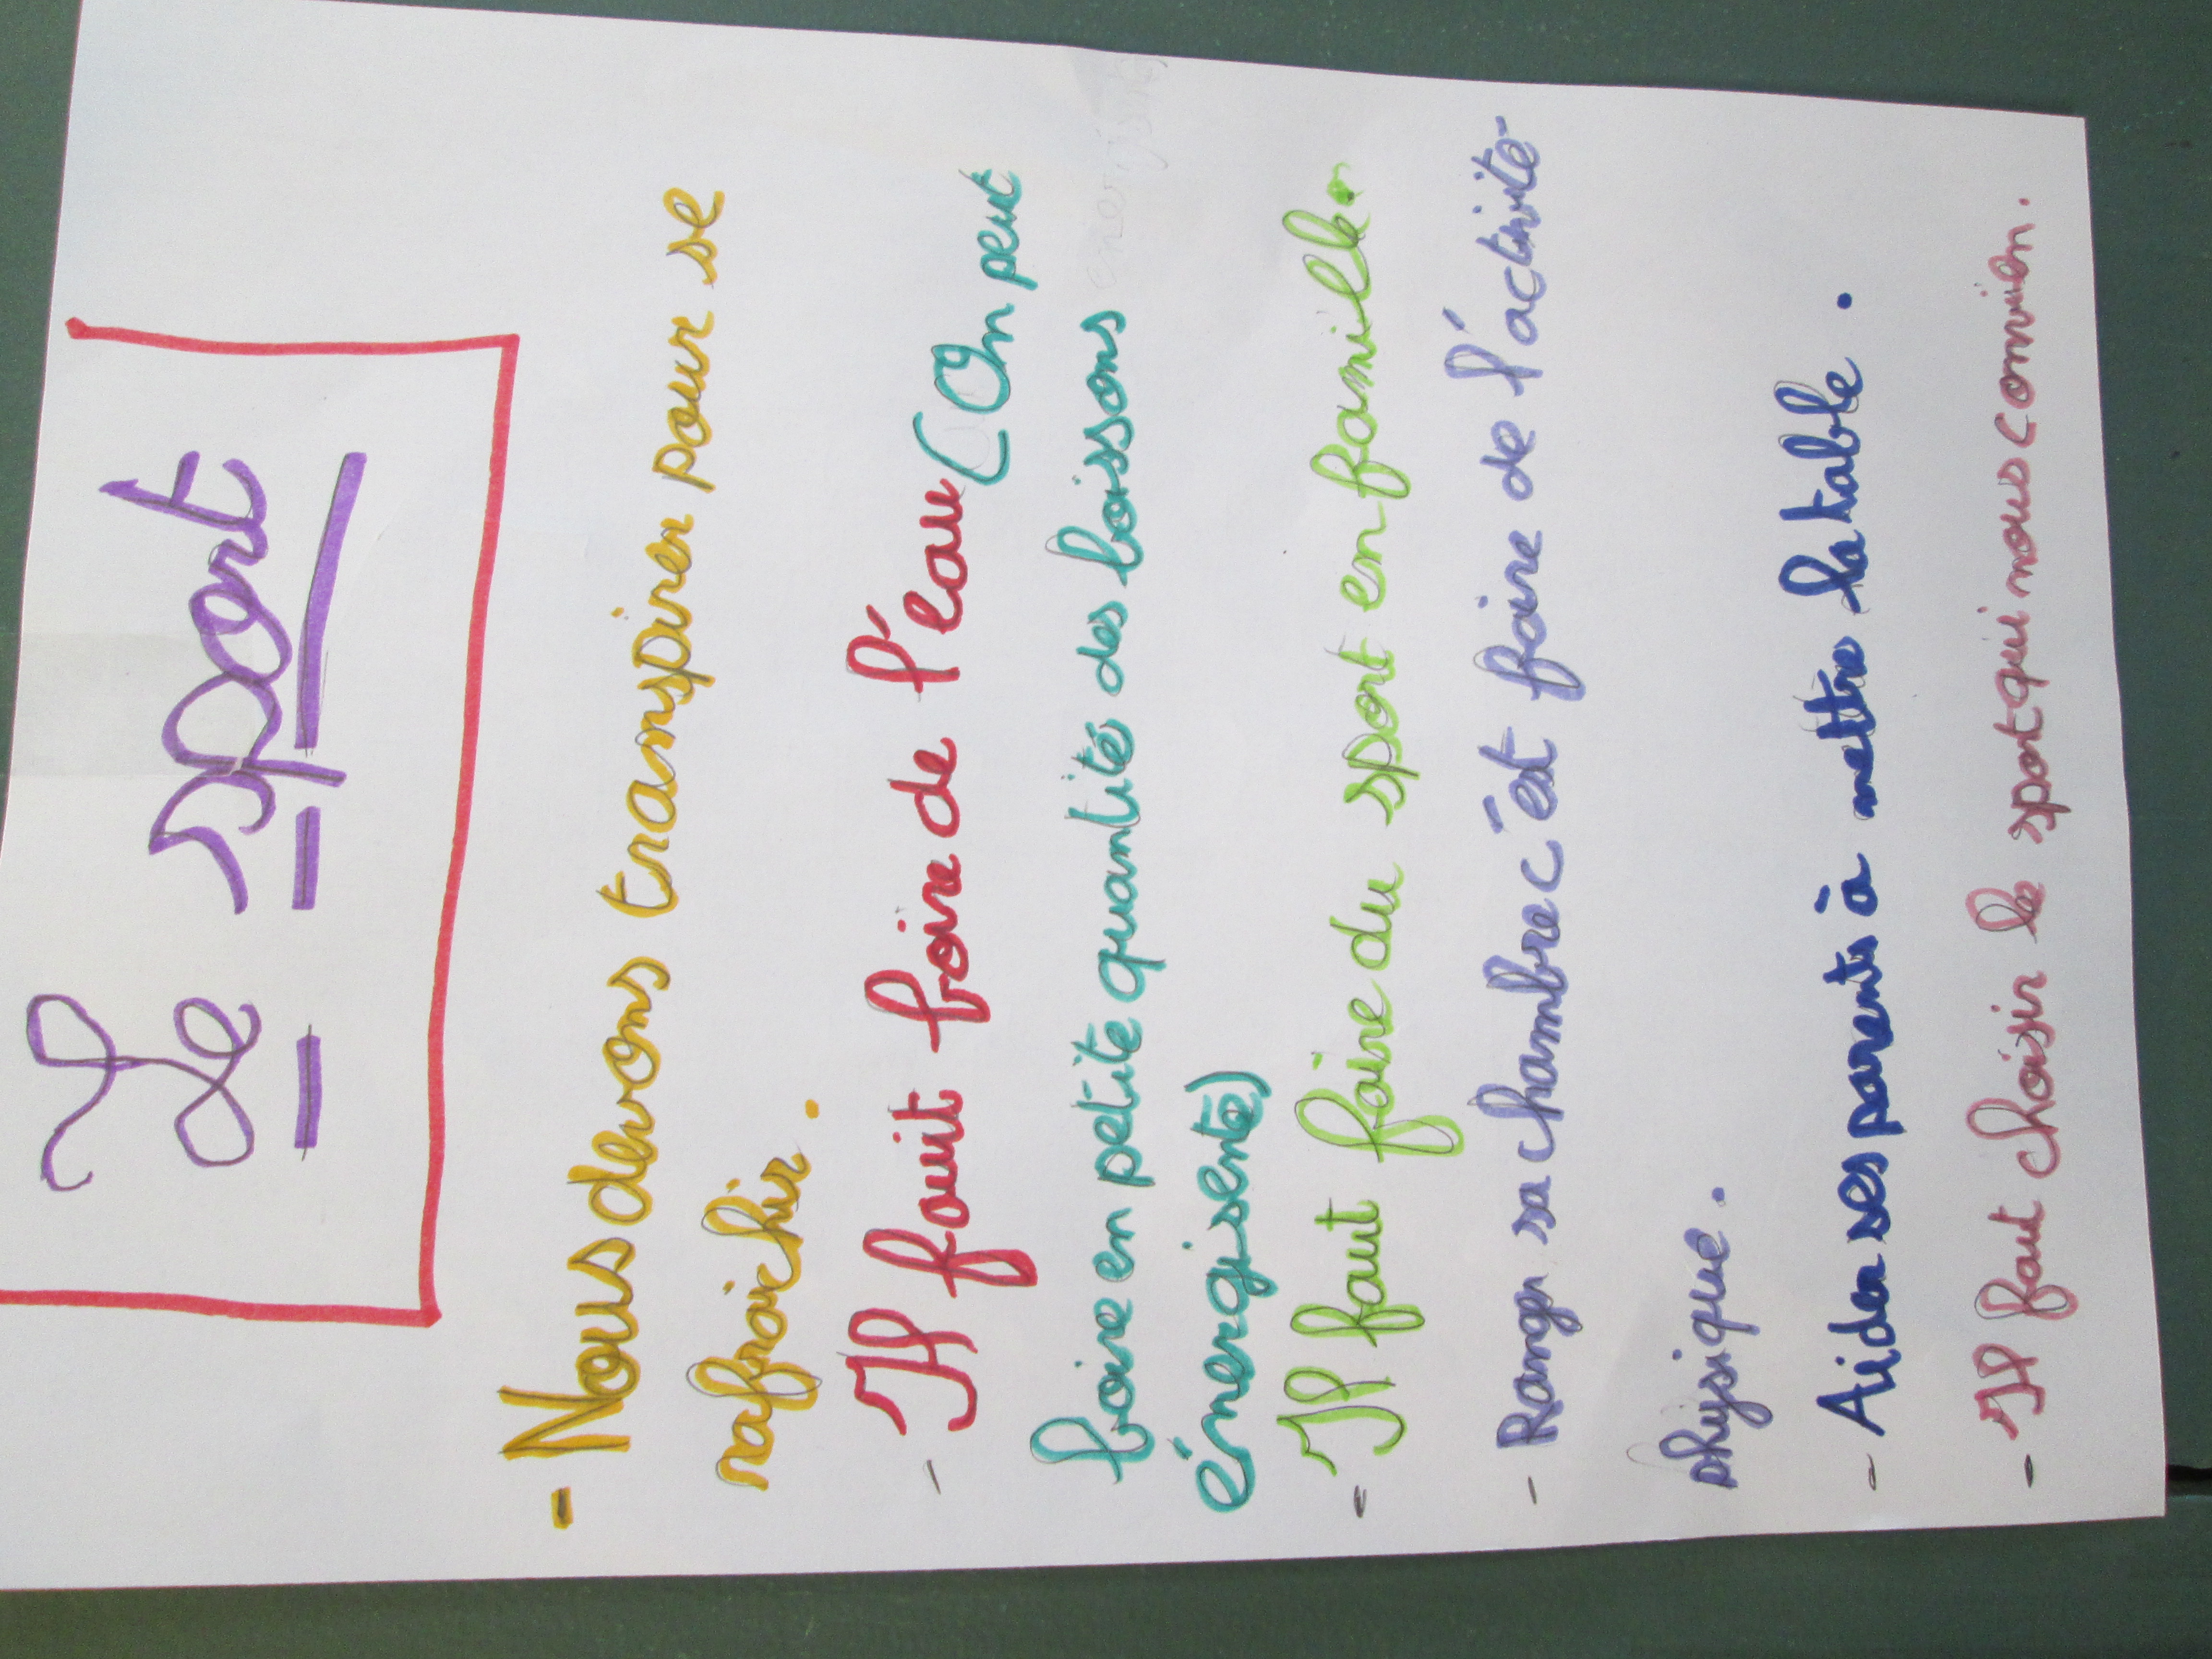 Le sport
- Nous devons transpirer pour se
rafraichir.
- Il faut boire de l'eau (On peut
boire en petite quantité des boissons
énergisente)
- Il faut faire du sport en famille.
- Ranger sa chambre c'est faire de l'activité
physique.
- Aider ses parents à mettre la table.
- Il faut choisir le sport qui nous convien.